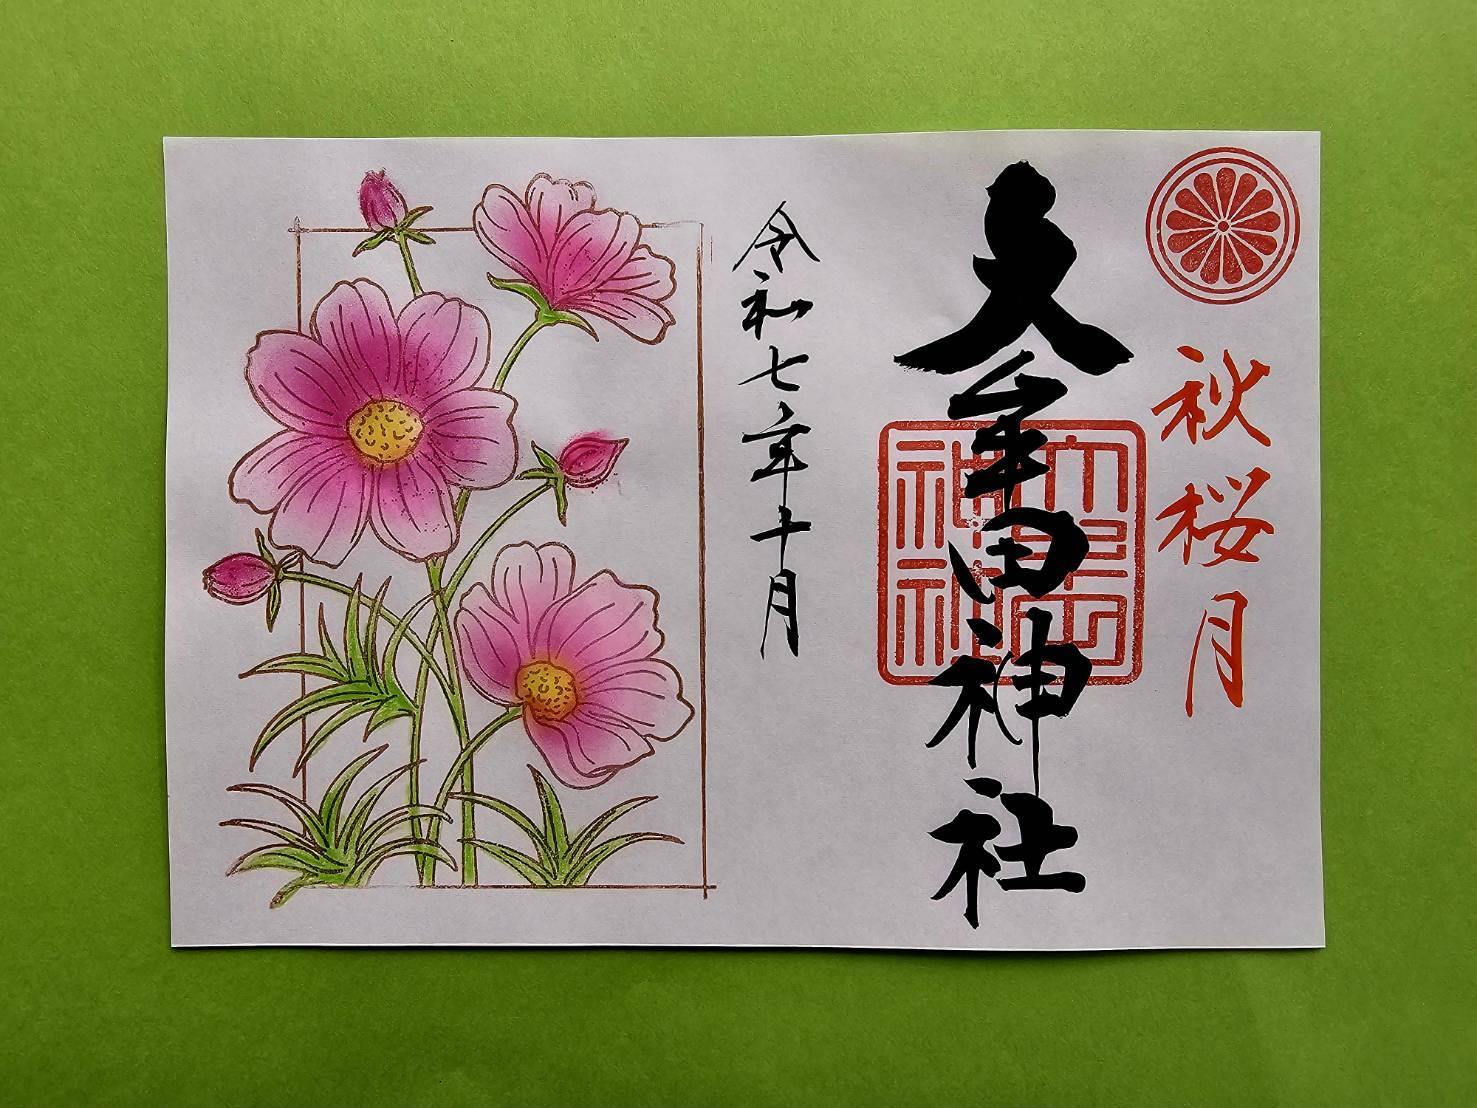 秋桜月
大牟田神社
令和七年十月